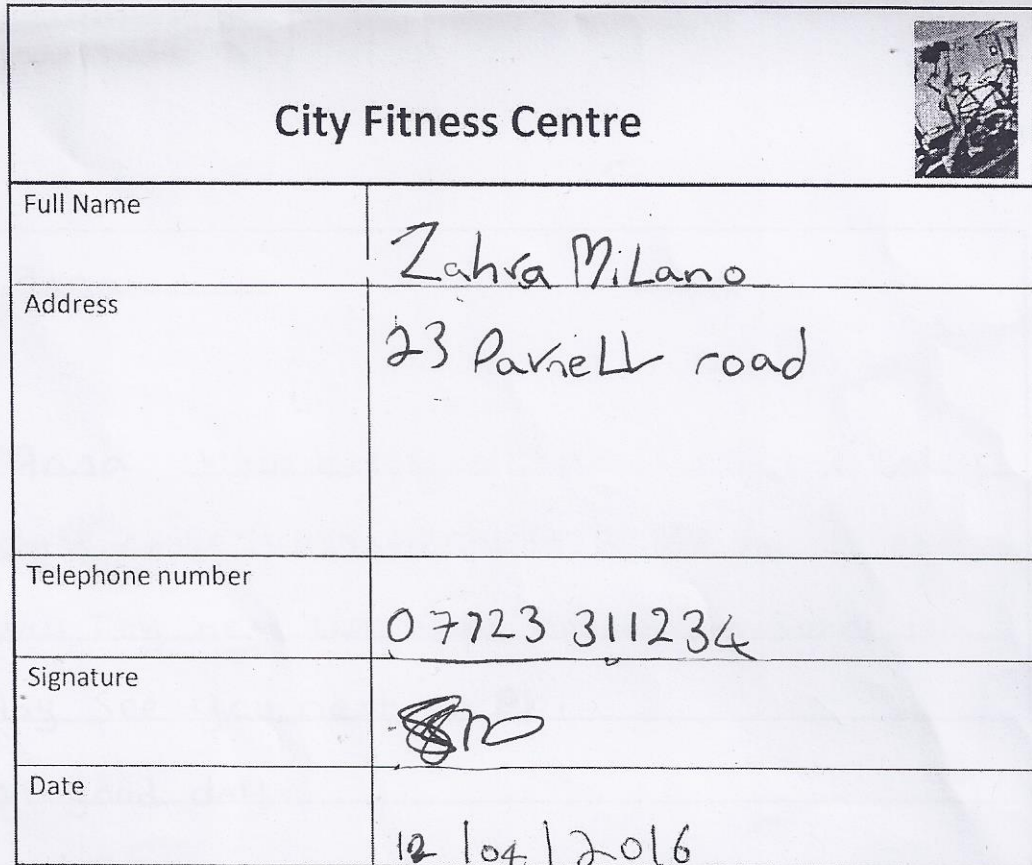 City Fitness Centre
Full Name
Zahra MiLano
Address
23 Parnell road
Telephone number
07723 311234
Signature
Date
12/04/2016